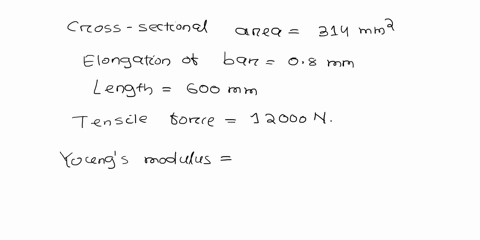 Cross-sectional area = 314 mm²
Elongation of bar = 0.8 mm
Length = 600 mm
Tensile force = 12000 N.
Young's modulus =